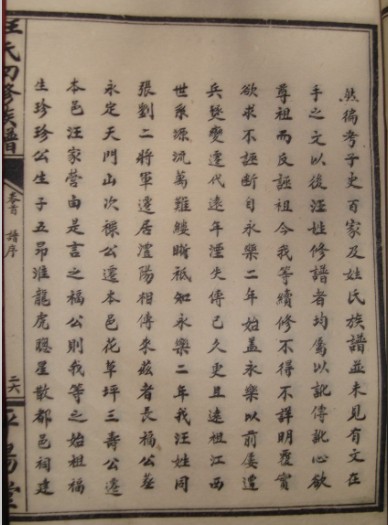 然徧考子史百家及姓氏族譜並未見有文在
手之文以後汪姓修譜者均屬以訛傳訛心欲
尊祖而反誣祖今我等續修不得不詳明覆實
欲求不誣斷自永樂二年始蓋永樂以前屡遭
兵燹變遷代遠年湮失傳已久更且遠祖江西
世系源流萬難縷晰祗知永樂二年我汪姓同
張劉二將軍遷居澧陽相傳來兹者長福公塟
永定天門山次祿公遷本邑花草坪三壽公遷
本邑汪家營由是言之福公則我等之始祖福
生珍珍公生子五昴淮龍虎聰星散都邑祠建
汪氏四修族譜
卷首 譜序
二六
平陽堂